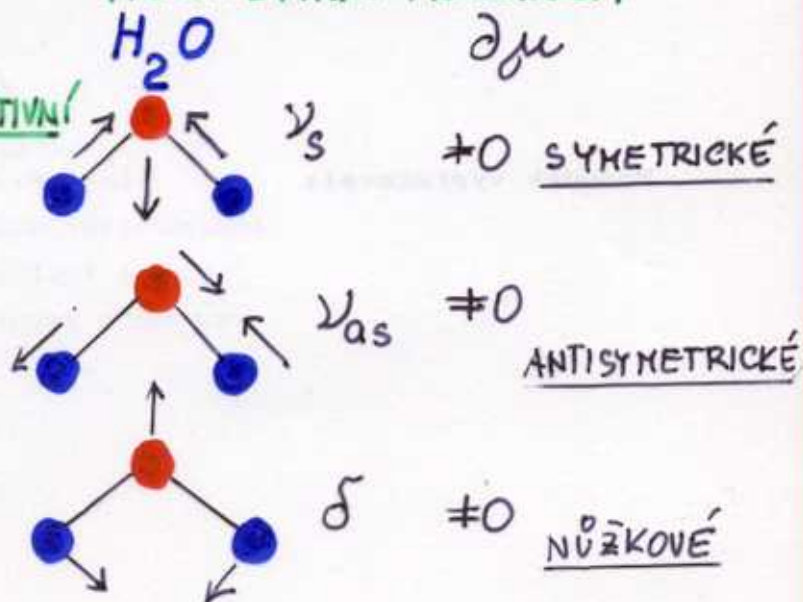 H₂O ∂μ
TIVNÍ
νs ≠0 SYMETRICKÉ
νas ≠0
ANTISYMETRICKÉ
δ ≠0 NŮŽKOVÉ